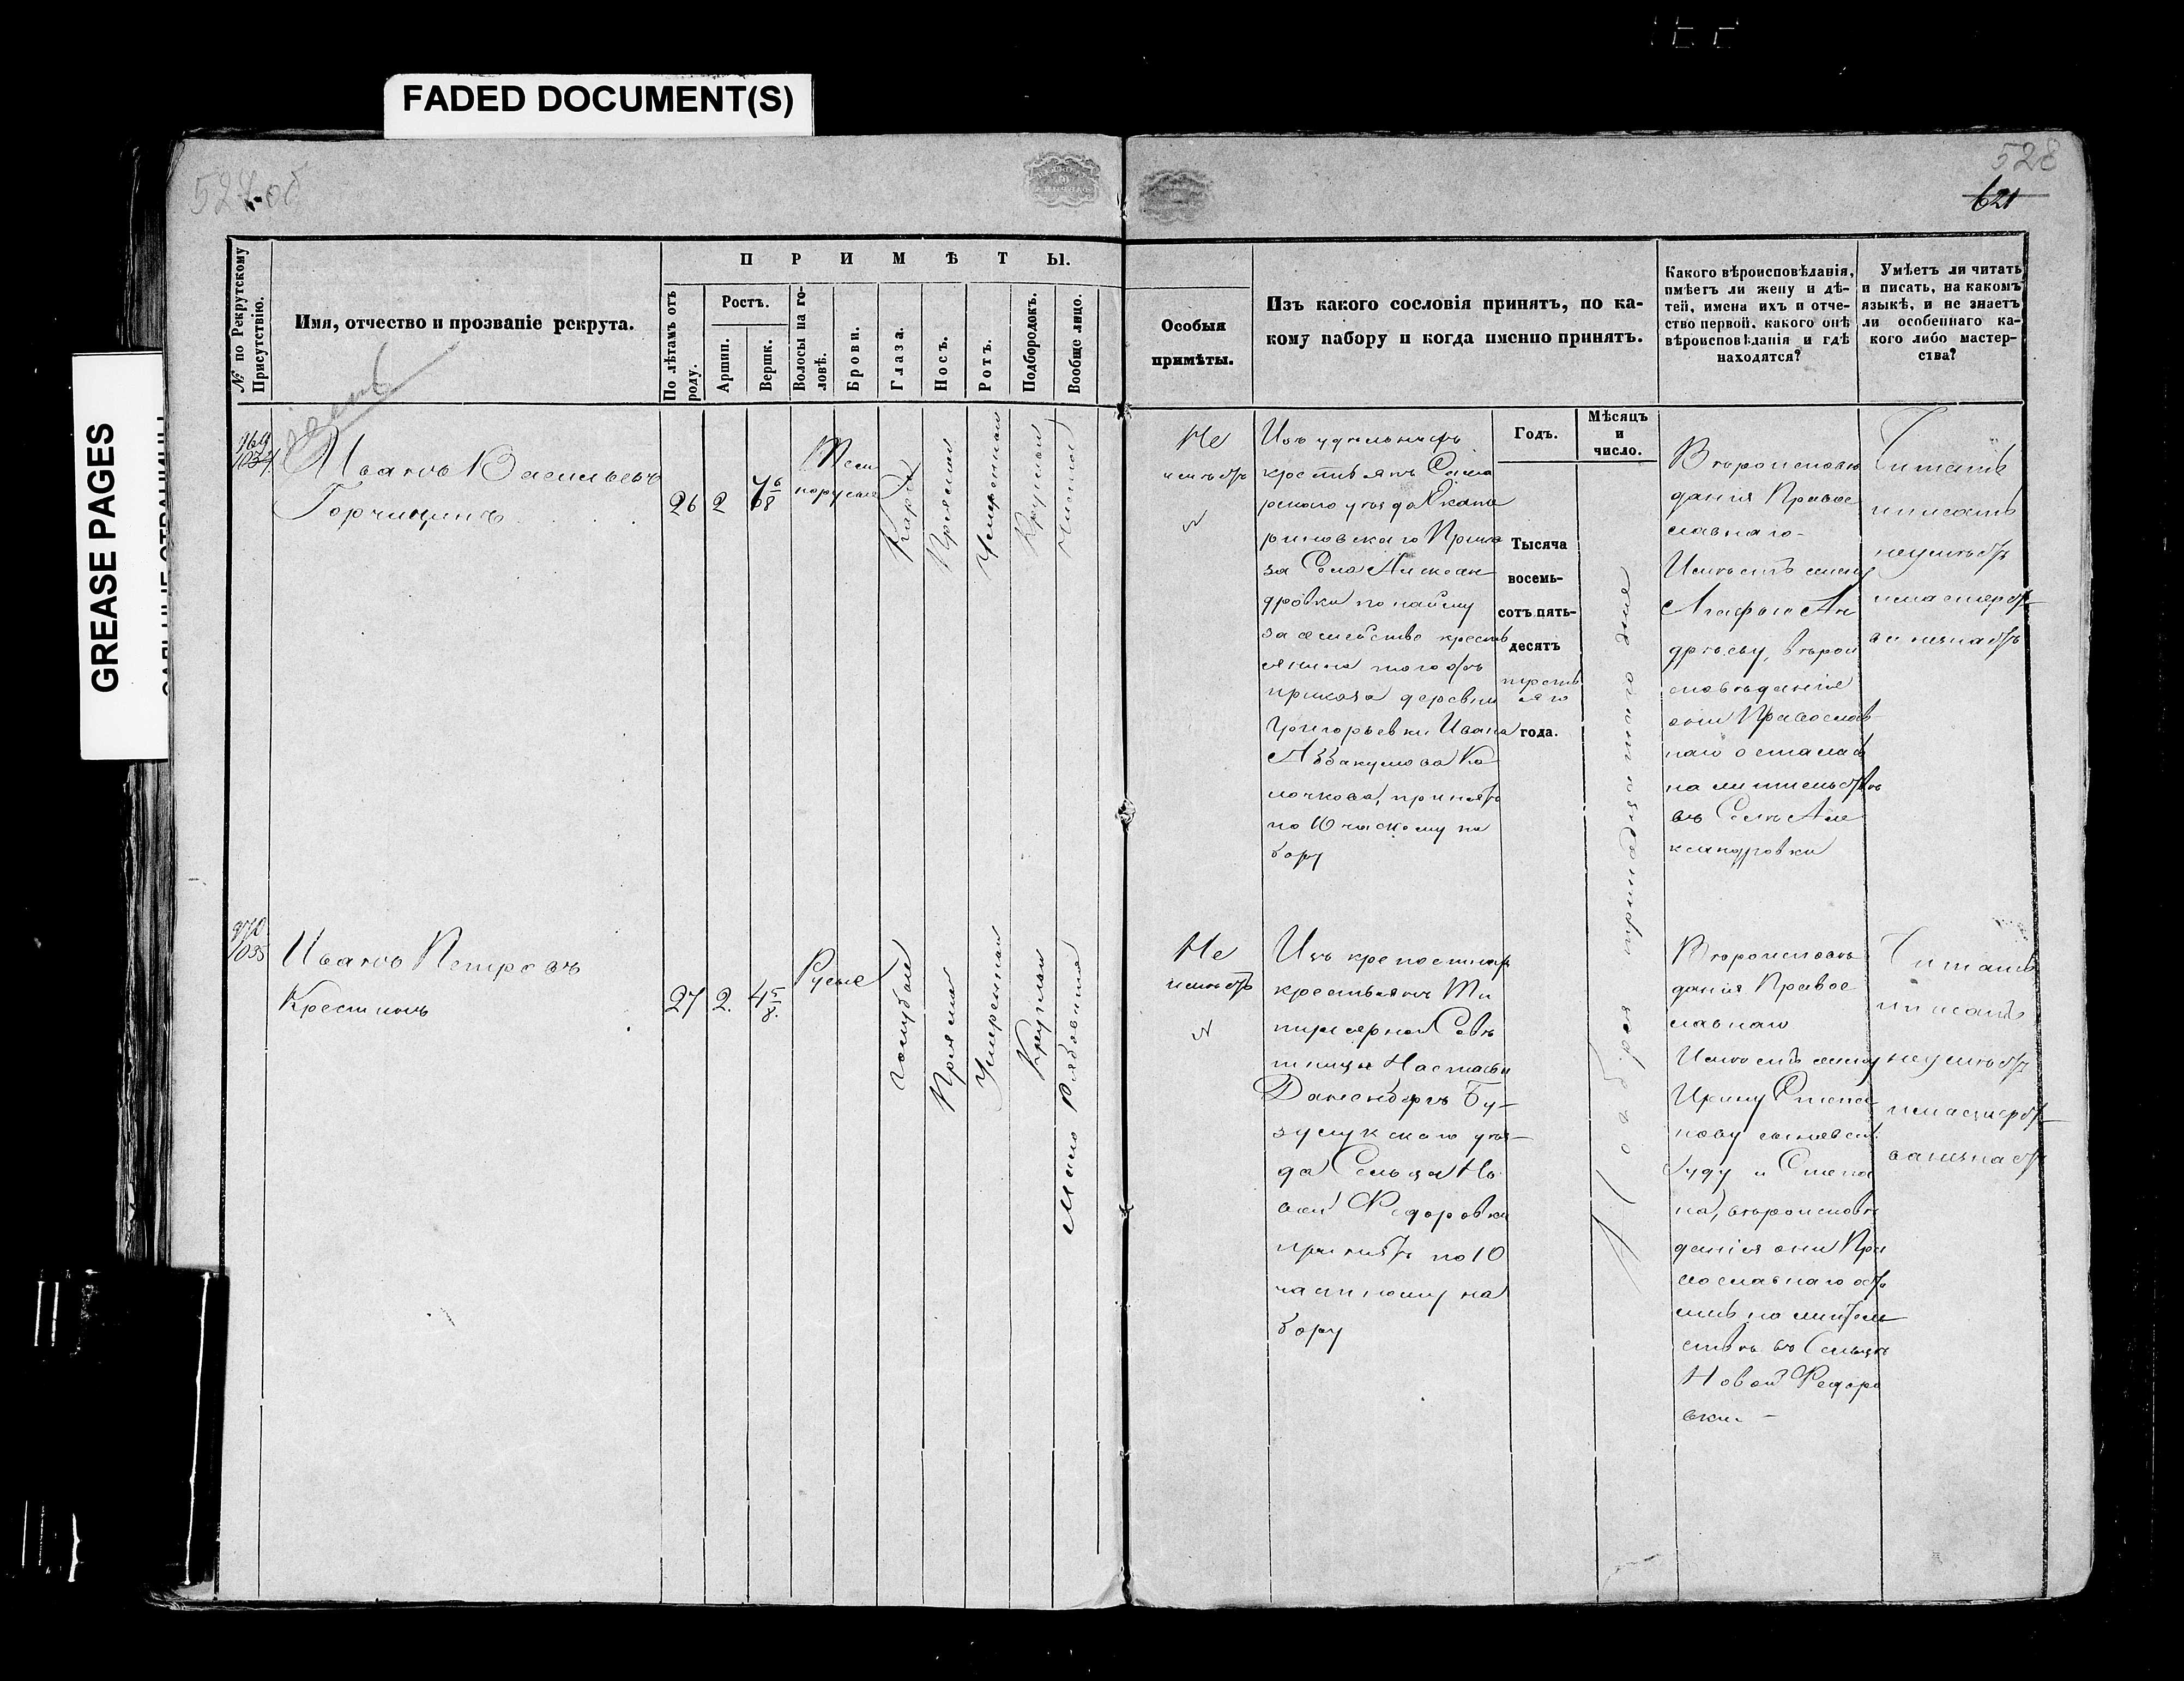 FADED DOCUMENT(S)
GREASE PAGES
527 об
528
621
№ по Рекрутскому Присутствію.
Имя, отчество и прозваніе рекрута.
ПРИМѢТЫ.
По лѣтамъ отъ роду.
Ростъ.
Аршин.
Вершк.
Волосы на головѣ.
Брови.
Глаза.
Носъ.
Ротъ.
Подбородокъ.
Вообще лицо.
Особыя
примѣты.
Изъ какого сословія принятъ, по ка-
кому набору и когда именно принятъ.
Какого вѣроисповѣданія,
имѣетъ ли жену и дѣ-
тей, имена ихъ и отче-
ство первой, какого онѣ
вѣроисповѣданія и гдѣ
находятся?
Умѣетъ ли читать
и писать, на какомъ
языкѣ, и не знаетъ
ли особеннаго ка-
кого либо мастер-
ства?
Годъ.
Мѣсяцъ
и
число.
969
1034
Иванъ Васильевъ
Горчицинъ
26
2
7 6/8
Темно
русые
Каріе
Прямой
Умеренный
Круглый
Чистое
Не
имѣетъ
Изъ удѣльныхъ
крестьянъ Сама
рскаго уѣзда Екате
риновскаго Прика
за Села Алексан
дровки по найму
за семейство кресть
янина того жъ
приказа деревни
Григорьевки Ивана
Аввакумова Ко
лочкова, принятъ
по 10 часному на
бору
Тысяча
восемь-
сотъ пять-
десятъ
третья
го
года.
Ноября тринадцатого дня
Вѣроисповѣ
данія Право
славнаго
Имѣетъ жену
Агафью Ан
дрѣеву, вѣрои
сповѣданія
они Православ
наго осталась
на жительствѣ
въ Селѣ Але
ксандровки
Читать
и писать
не умѣетъ
и мастерст
ва не знаетъ
970
1035
Иванъ Петровъ
Крестинъ
27
2.
4 5/8.
Русые
голубые
Прямой
Умеренный
Круглый
Мало Рябоватое
Не
имѣетъ
Изъ крепостныхъ
крестьянъ Ти
тулярной Совѣ
тницы Настасьи
Даненбергъ Бу-
зулукскаго уѣз-
да Сельца Но
вой Федоровки
принятъ по 10
частному на
бору
Вѣроисповѣ
данія Право
славнаго
Имѣетъ жену
Ирину Степа
нову сыновей
Гуду и Степа
на, вѣроисповѣ
данія они Пра
вославнаго оста
лись на житель
ствѣ въ Сельцѣ
Новой Федоро
вки
Читать
и писать
не умѣетъ
и мастерст
ва не знаетъ